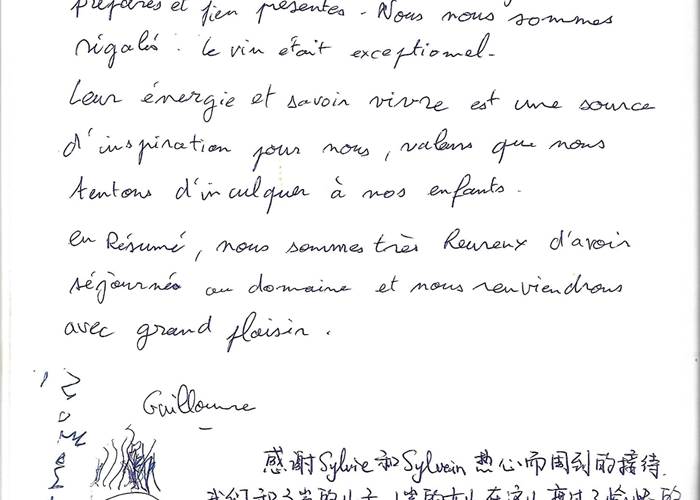 préparés et bien présentés. Nous nous sommes
régalés. le vin était exceptionnel.
Leur énergie et savoir vivre est une source
d'inspiration pour nous, valeurs que nous
tentons d'inculquer à nos enfants.
en Résumé, nous sommes très heureux d'avoir
séjournés au domaine et nous renviendrons
avec grand plaisir.
Guillaume
感谢Sylvie和Sylvain热心而周到的接待.
我们和 岁的儿子, 岁的 在这儿度过了愉快的